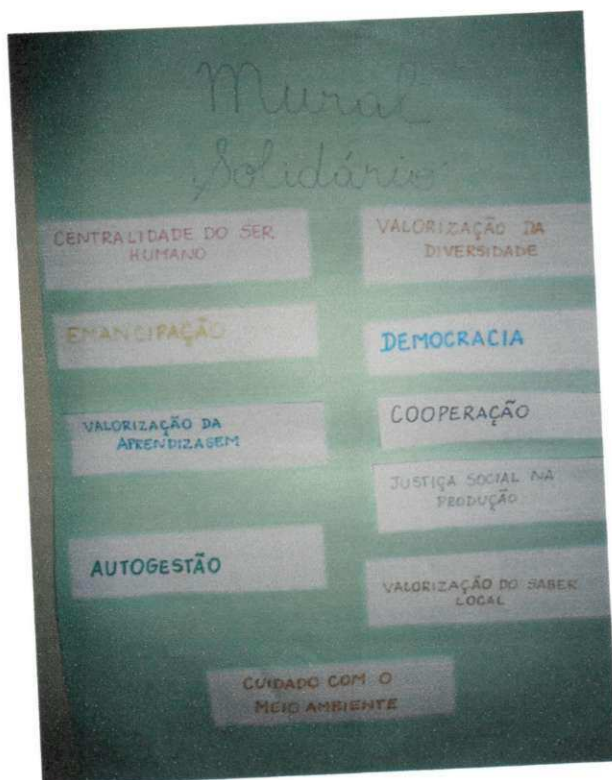 Mural
Solidário
CENTRALIDADE DO SER
HUMANO
EMANCIPAÇÃO
VALORIZAÇÃO DA
APRENDIZAGEM
AUTOGESTÃO
VALORIZAÇÃO DA
DIVERSIDADE
DEMOCRACIA
COOPERAÇÃO
JUSTIÇA SOCIAL NA
PRODUÇÃO
VALORIZAÇÃO DO SABER
LOCAL
CUIDADO COM O
MEIO AMBIENTE